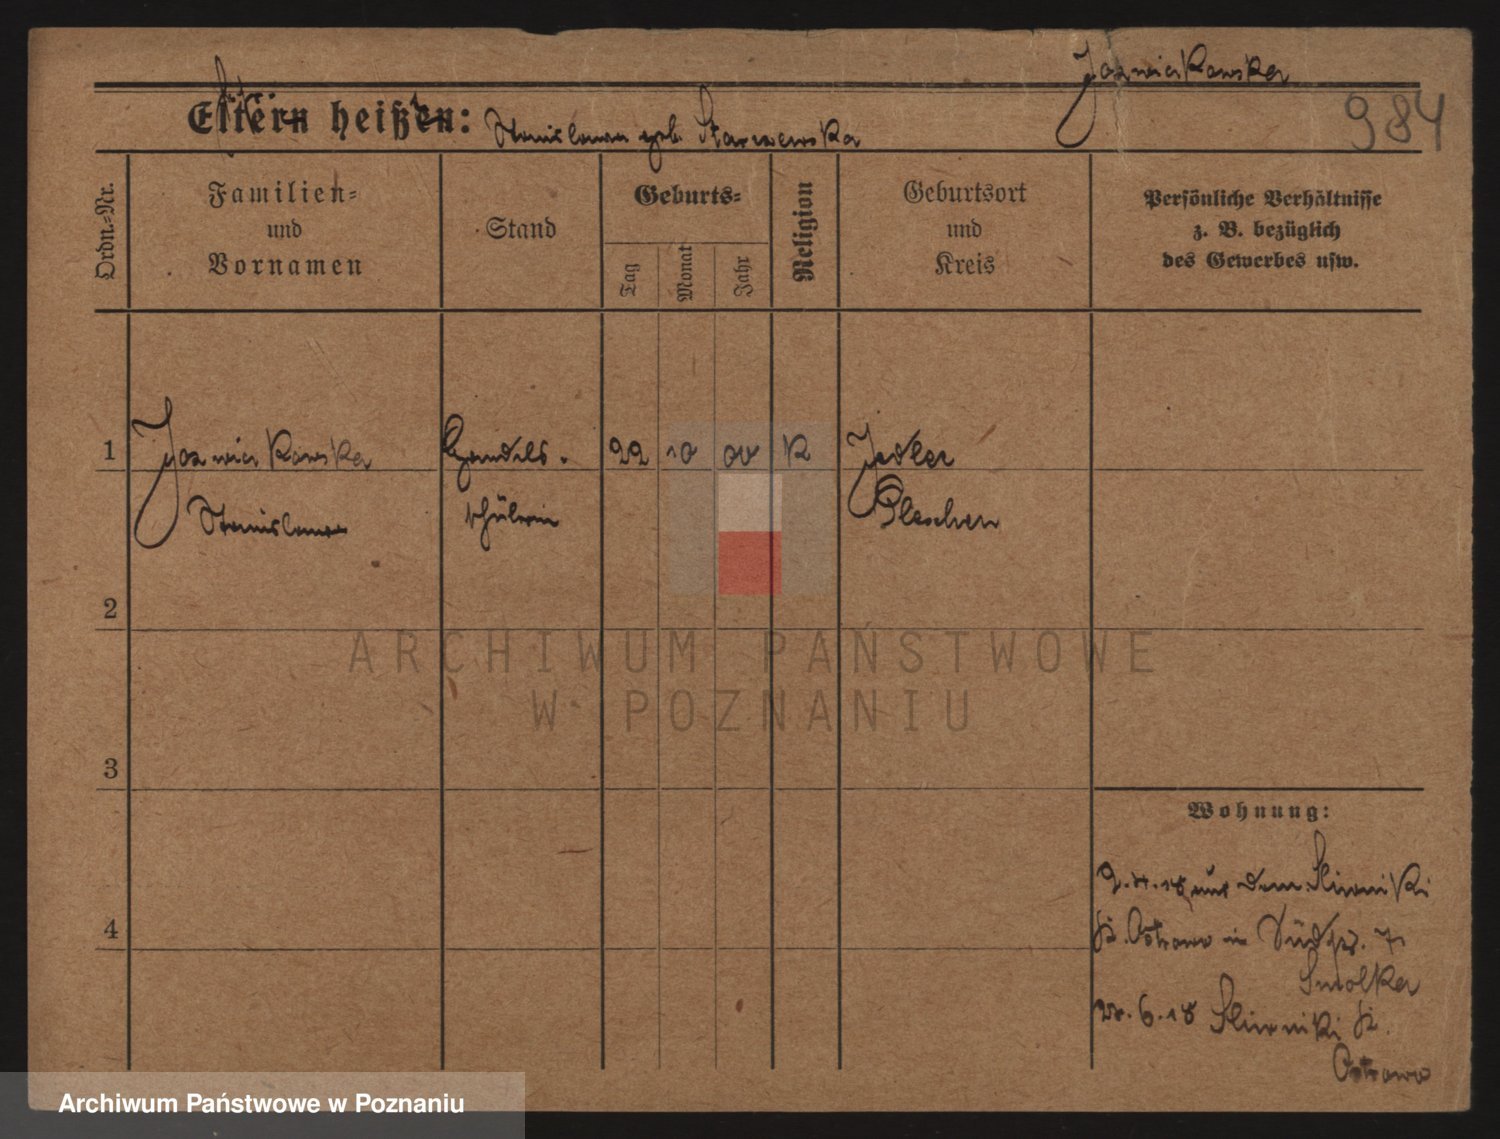 Jozwiakowska
984
Eltern heißen: Stanislawa geb. Starzewska
Ordn.-Nr.
Familien-
und
Vornamen
Stand
Geburts-
Tag
Monat
Jahr
Religion
Geburtsort
und
Kreis
Persönliche Verhältnisse
z. B. bezüglich
des Gewerbes usw.
1
Handels-
22 10 00 K
Jedlec
Stanislawa
schülerin
Pleschen
2
ARCHIWUM PAŃSTWOWE
W POZNANIU
3
Wohnung:
aus dem Sliwniki
Kr. Ostrowo in
Smolka
6.18 Sliwniki Kr.
Ostrowo
4
Archiwum Państwowe w Poznaniu